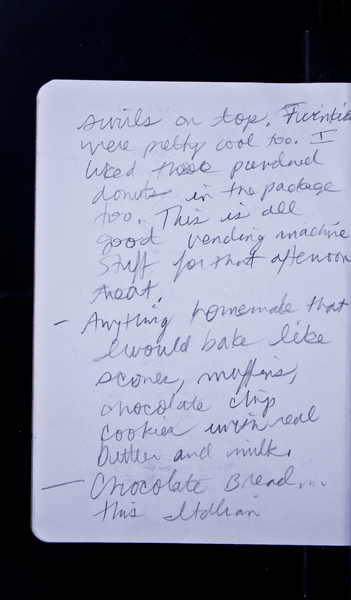 swirls on top. Twinkies
were pretty cool too. I
liked those powdered
donuts in the package
too. This is all
good vending machine
stuff for that afternoon
treat.
– Anything homemade that
I would bake like
scones, muffins,
chocolate chip
cookies with real
butter and milk.
— Chocolate Bread...
this Italian